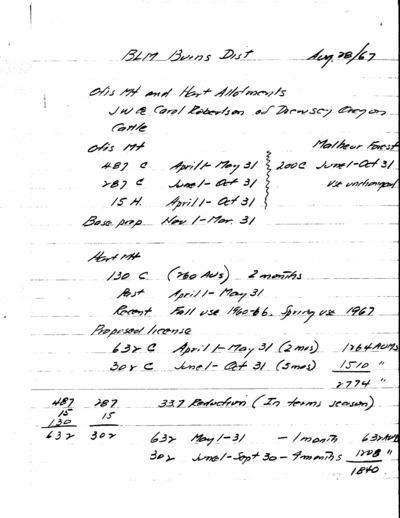 BLM Burns Dist Aug. 28/67
Otis Mt and Hart Allotments
J W & Carol Robertson of Drewsey Oregon
Cattle
Otis Mt Malheur Forest
487 C April 1- May 31 200C June 1-Oct 31
287 C June 1- Oct 31 use unchanged
15 H. April 1- Oct 31
Base prop Nov 1-Mar. 31
Hart Mt
130 C (260 AUs) 2 months
Past April 1- May 31
Recent Fall use 1960-66. Spring use 1967
Proposed license
632 C April 1- May 31 (2 mos) 1264 AUMs
302 C June 1- Oct 31 (5 mos) 1510 "
2774 "
487 287 33.7 Reduction (In terms season)
15 15
130
632 302 632 May 1-31 - 1 month 632 AUM
302 June 1-Sept 30 - 4 months 1208 "
1840